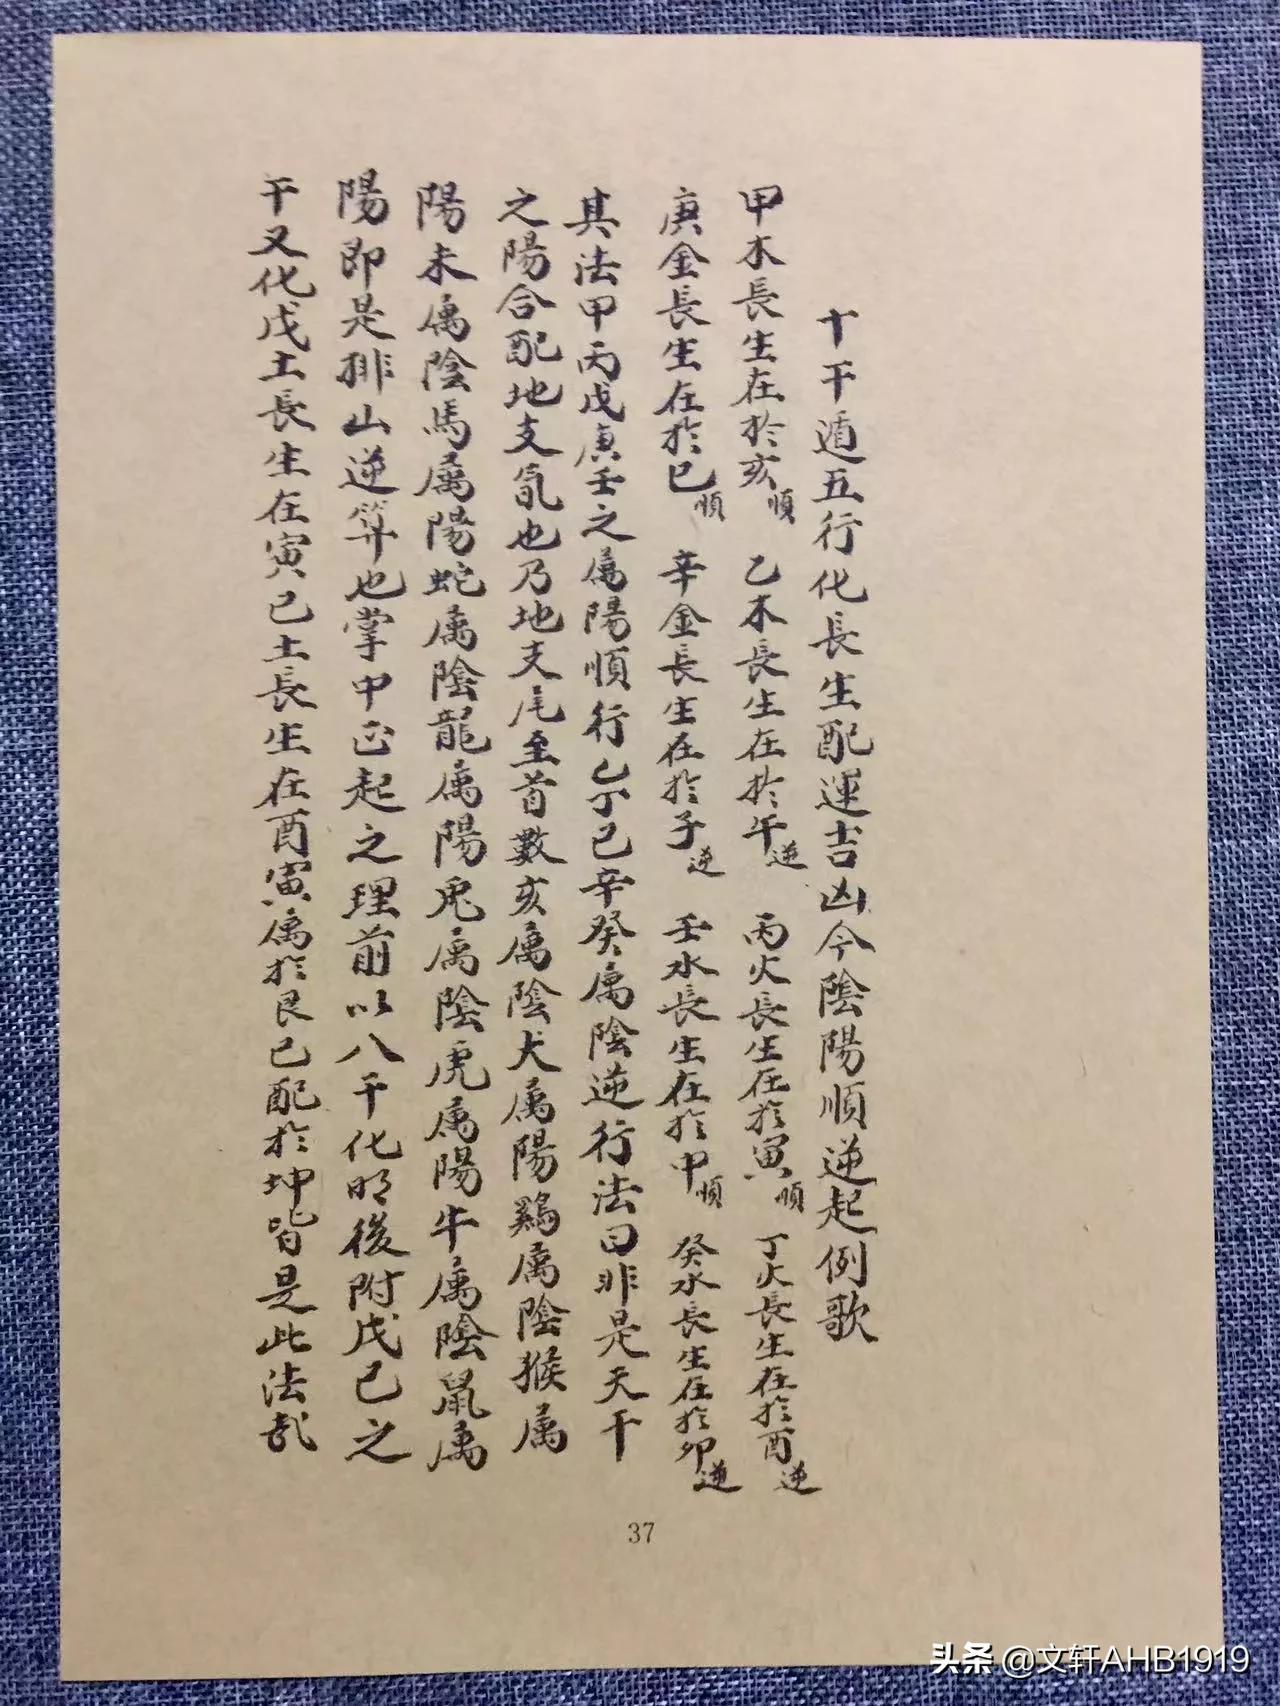 十干遁五行化長生配運吉凶今陰陽順逆起例歌
甲木長生在於亥順 乙木長生在於午逆 丙火長生在於寅順 丁火長生在於酉逆
庚金長生在於巳順 辛金長生在於子逆 壬水長生在於申順 癸水長生在於卯逆
其法甲丙戊庚壬之属陽順行乙丁己辛癸属陰逆行法曰非是天干
之陽合配地支氣也乃地支尾至首數亥属陰犬属陽鷄属陰猴属
陽未属陰馬属陽蛇属陰龍属陽兎属陰虎属陽牛属陰鼠属
陽即是排山逆算也掌中正起之理前以八干化明後附戊己之
干又化戊土長生在寅己土長生在酉寅属於艮己配於坤皆是此法
37
头条 @文轩AHB1919